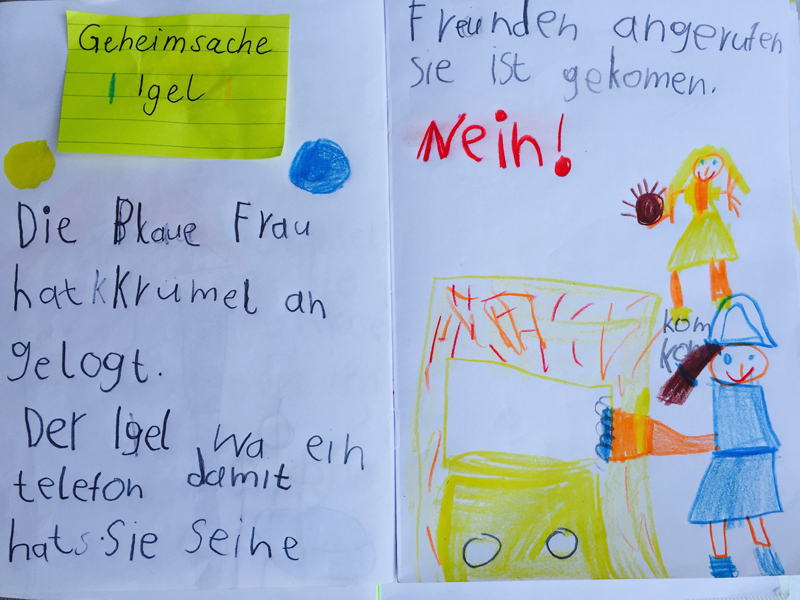 Geheimsache
Igel
Die Blaue Frau
hat Krümel an
gelogt.
Der Igel wa ein
telefon damit
hats Sie Seine
Freunden angerufen
sie ist gekomen.
Nein!
kom
kom